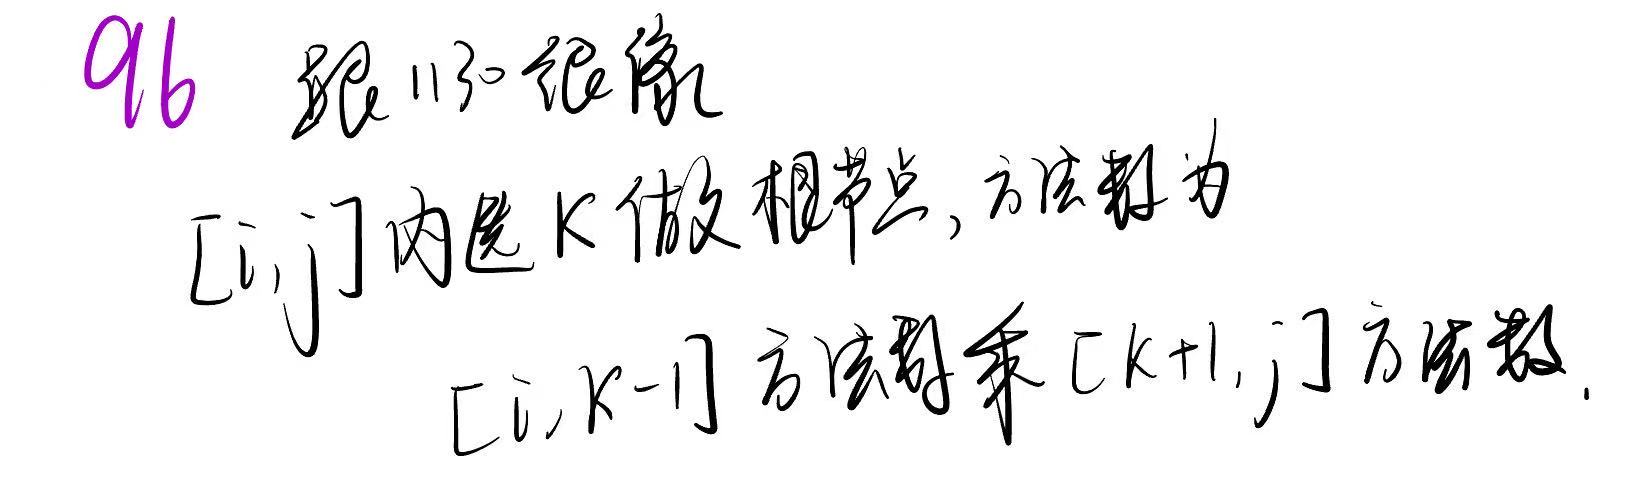 96 跟1130很像
[i,j]内选K做根节点,方法数为
[i,K-1]方法数乘[K+1,j]方法数.